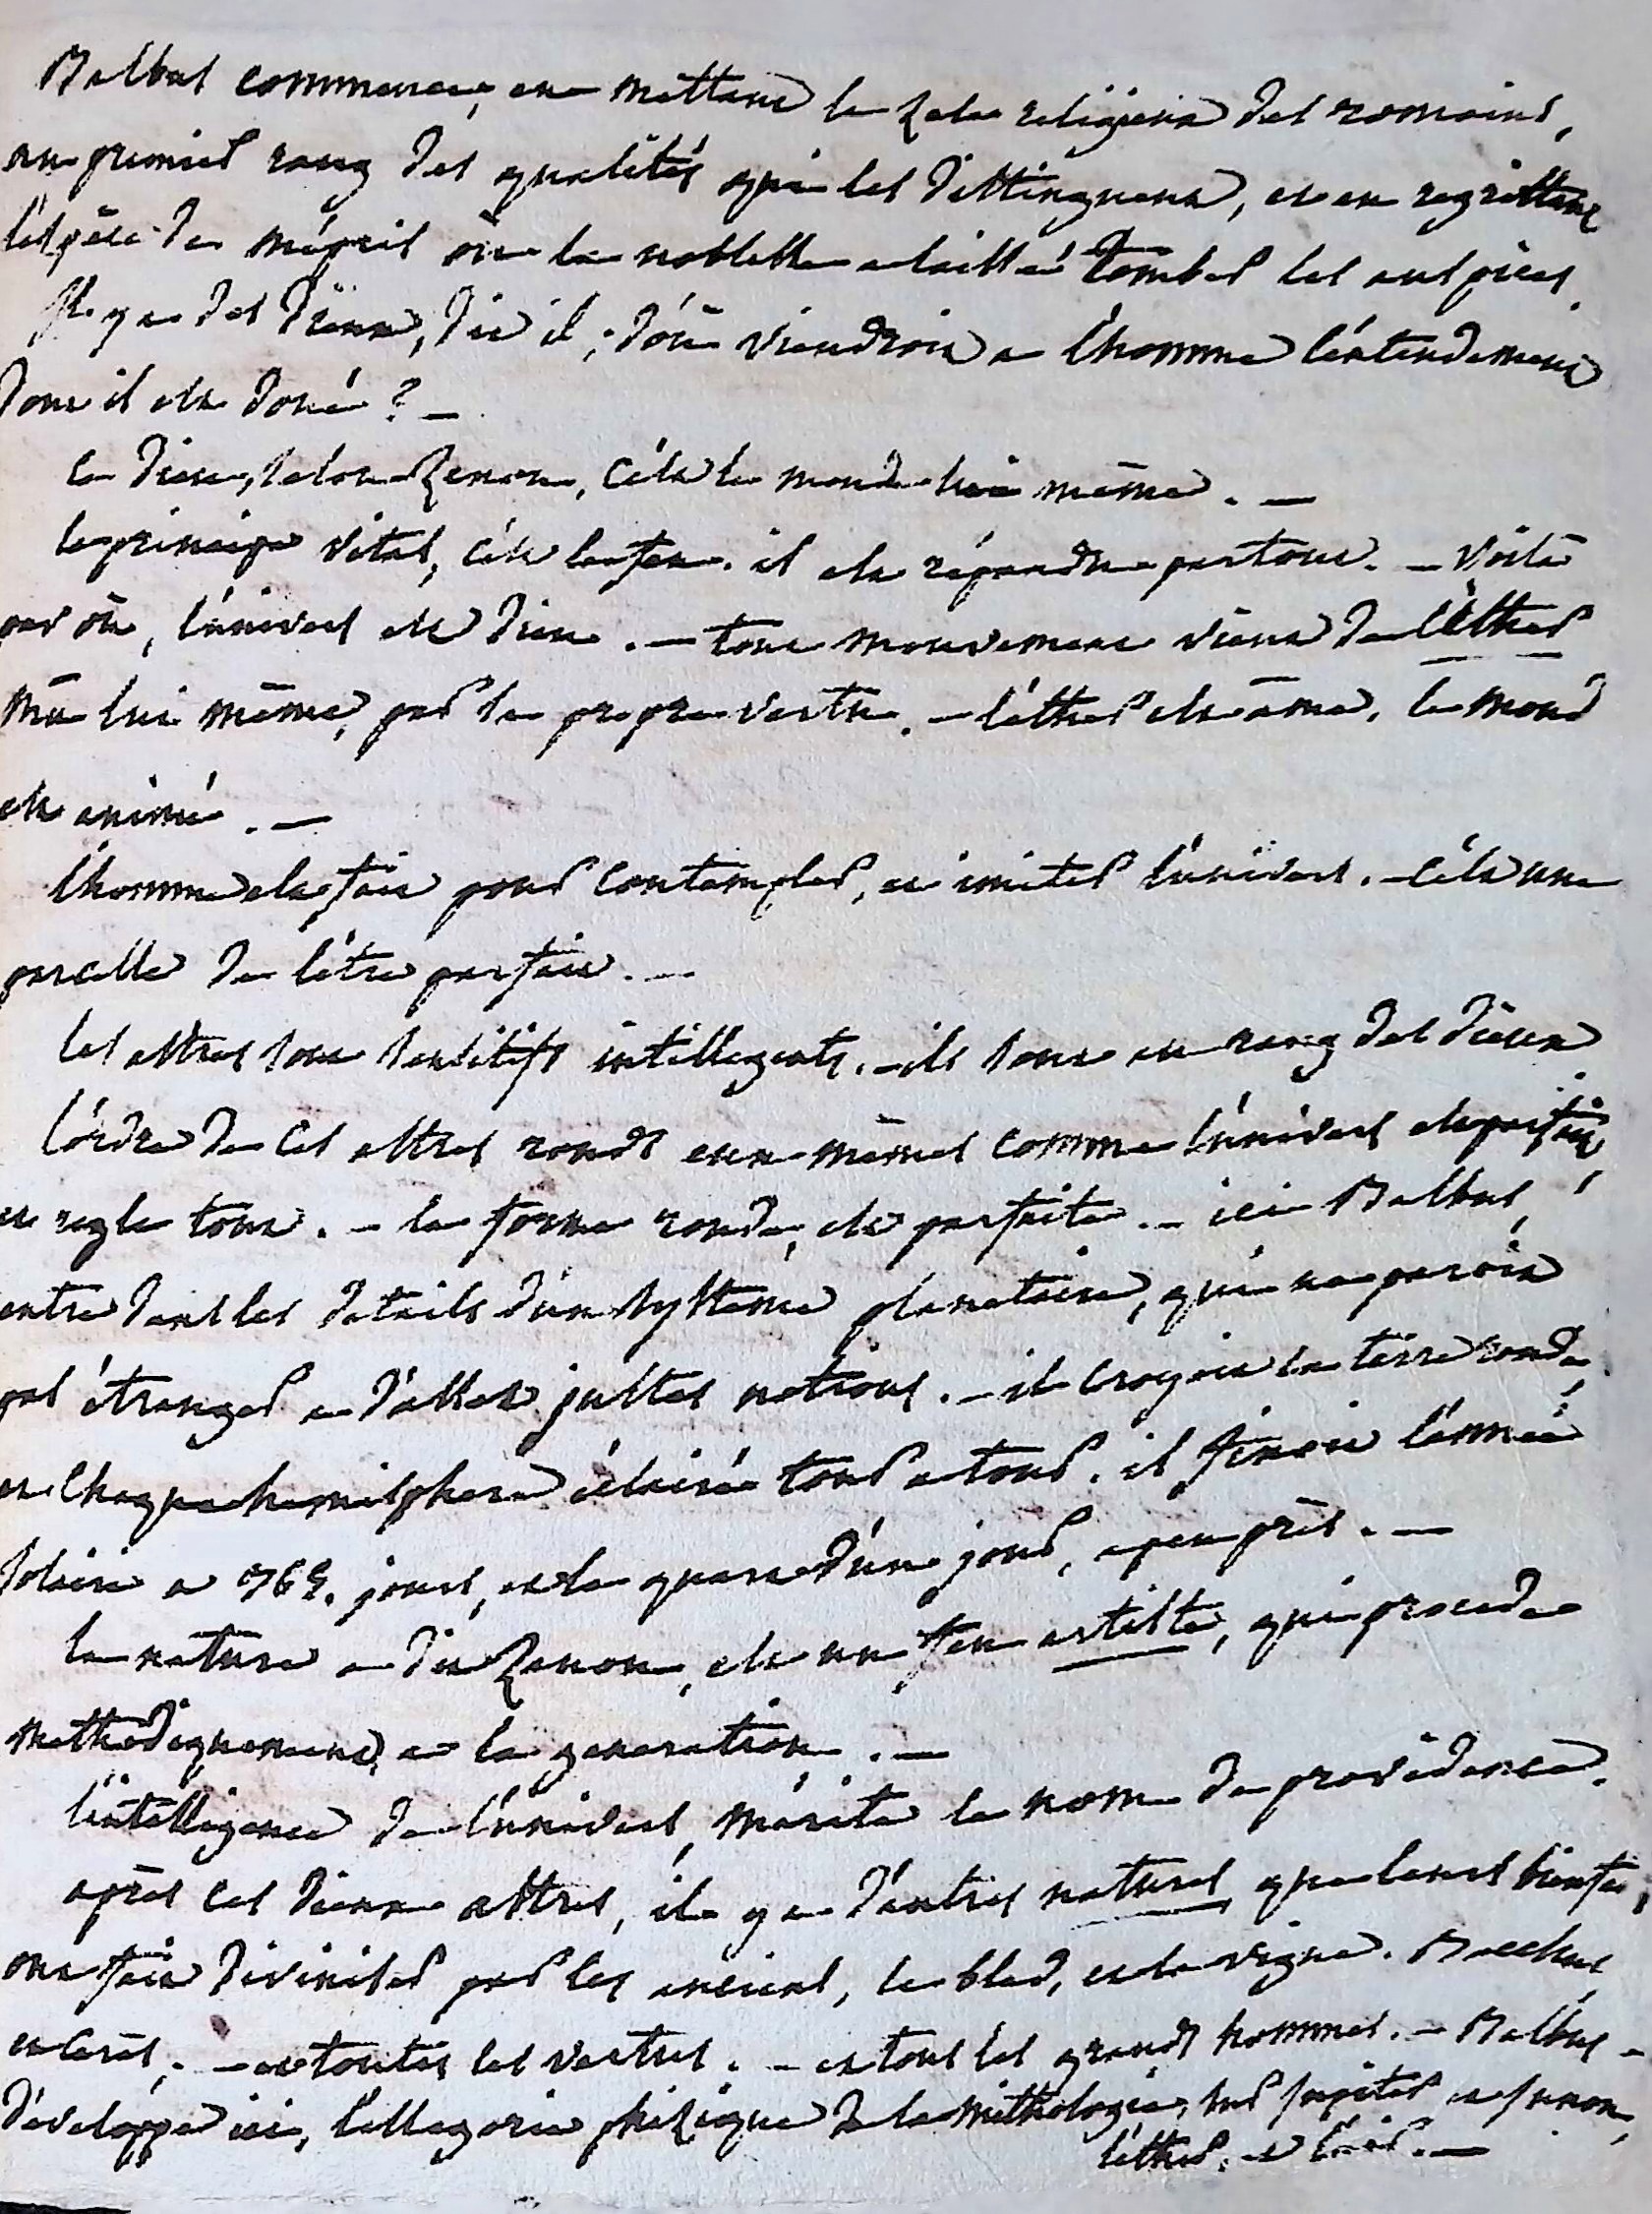 Balbus commence, en mettant le zele religieux des romains,
au premier rang des qualités qui les distinguent, et en regrettant
l'espèce de mépris où la noblesse a laissé tomber les auspices.
Il y a des Dieux, dit il, d'où viendroit a l'homme l'entendement
dont il est doué ? —
le Dieu, selon Zenon, c'est le monde lui même. —
le principe vital, c'est le feu. il est répandu partout. — Voilà
par où, l'univers est Dieu. — tout mouvement vient de l'éther
mu lui même, par sa propre vertu. — l'éther est âme, le mond
est animé. —
l'homme est fait pour contempler, et imiter l'univers. — c'est une
parcelle de l'être parfait. —
les astres sont sensitifs intelligents. — ils sont au rang des dieux
l'ordre de ces astres ronds eux-mêmes comme l'univers est parfait
et regle tout. — la forme ronde, est parfaite. — ici Balbus,
entre dans les details d'un systeme planetaire, qui ne paroit
pas étranger a d'assez justes notions. — il croyait la terre ronde,
et chaque hemisphere éclairée tour a tour. il fixoit l'année
solaire a 365. jours, et le quart d'un jour, a peu près. —
la nature a dit Zenon, est un feu artiste, qui procede
methodiquement, a la generation. —
l'intelligence de l'univers, merite le nom de providence.
après ces dieux astres, il y a d'autres natures, que leurs bienfai
ont fait diviniser par les anciens, le bled, et la vigne. Bacchus,
et Cerès, — et toutes les vertus. — et tous les grands hommes. — Balbus
développe ici, l'allegorie phisique de la mithologie, sur Jupiter et Junon,
l'éther, et l'air. —